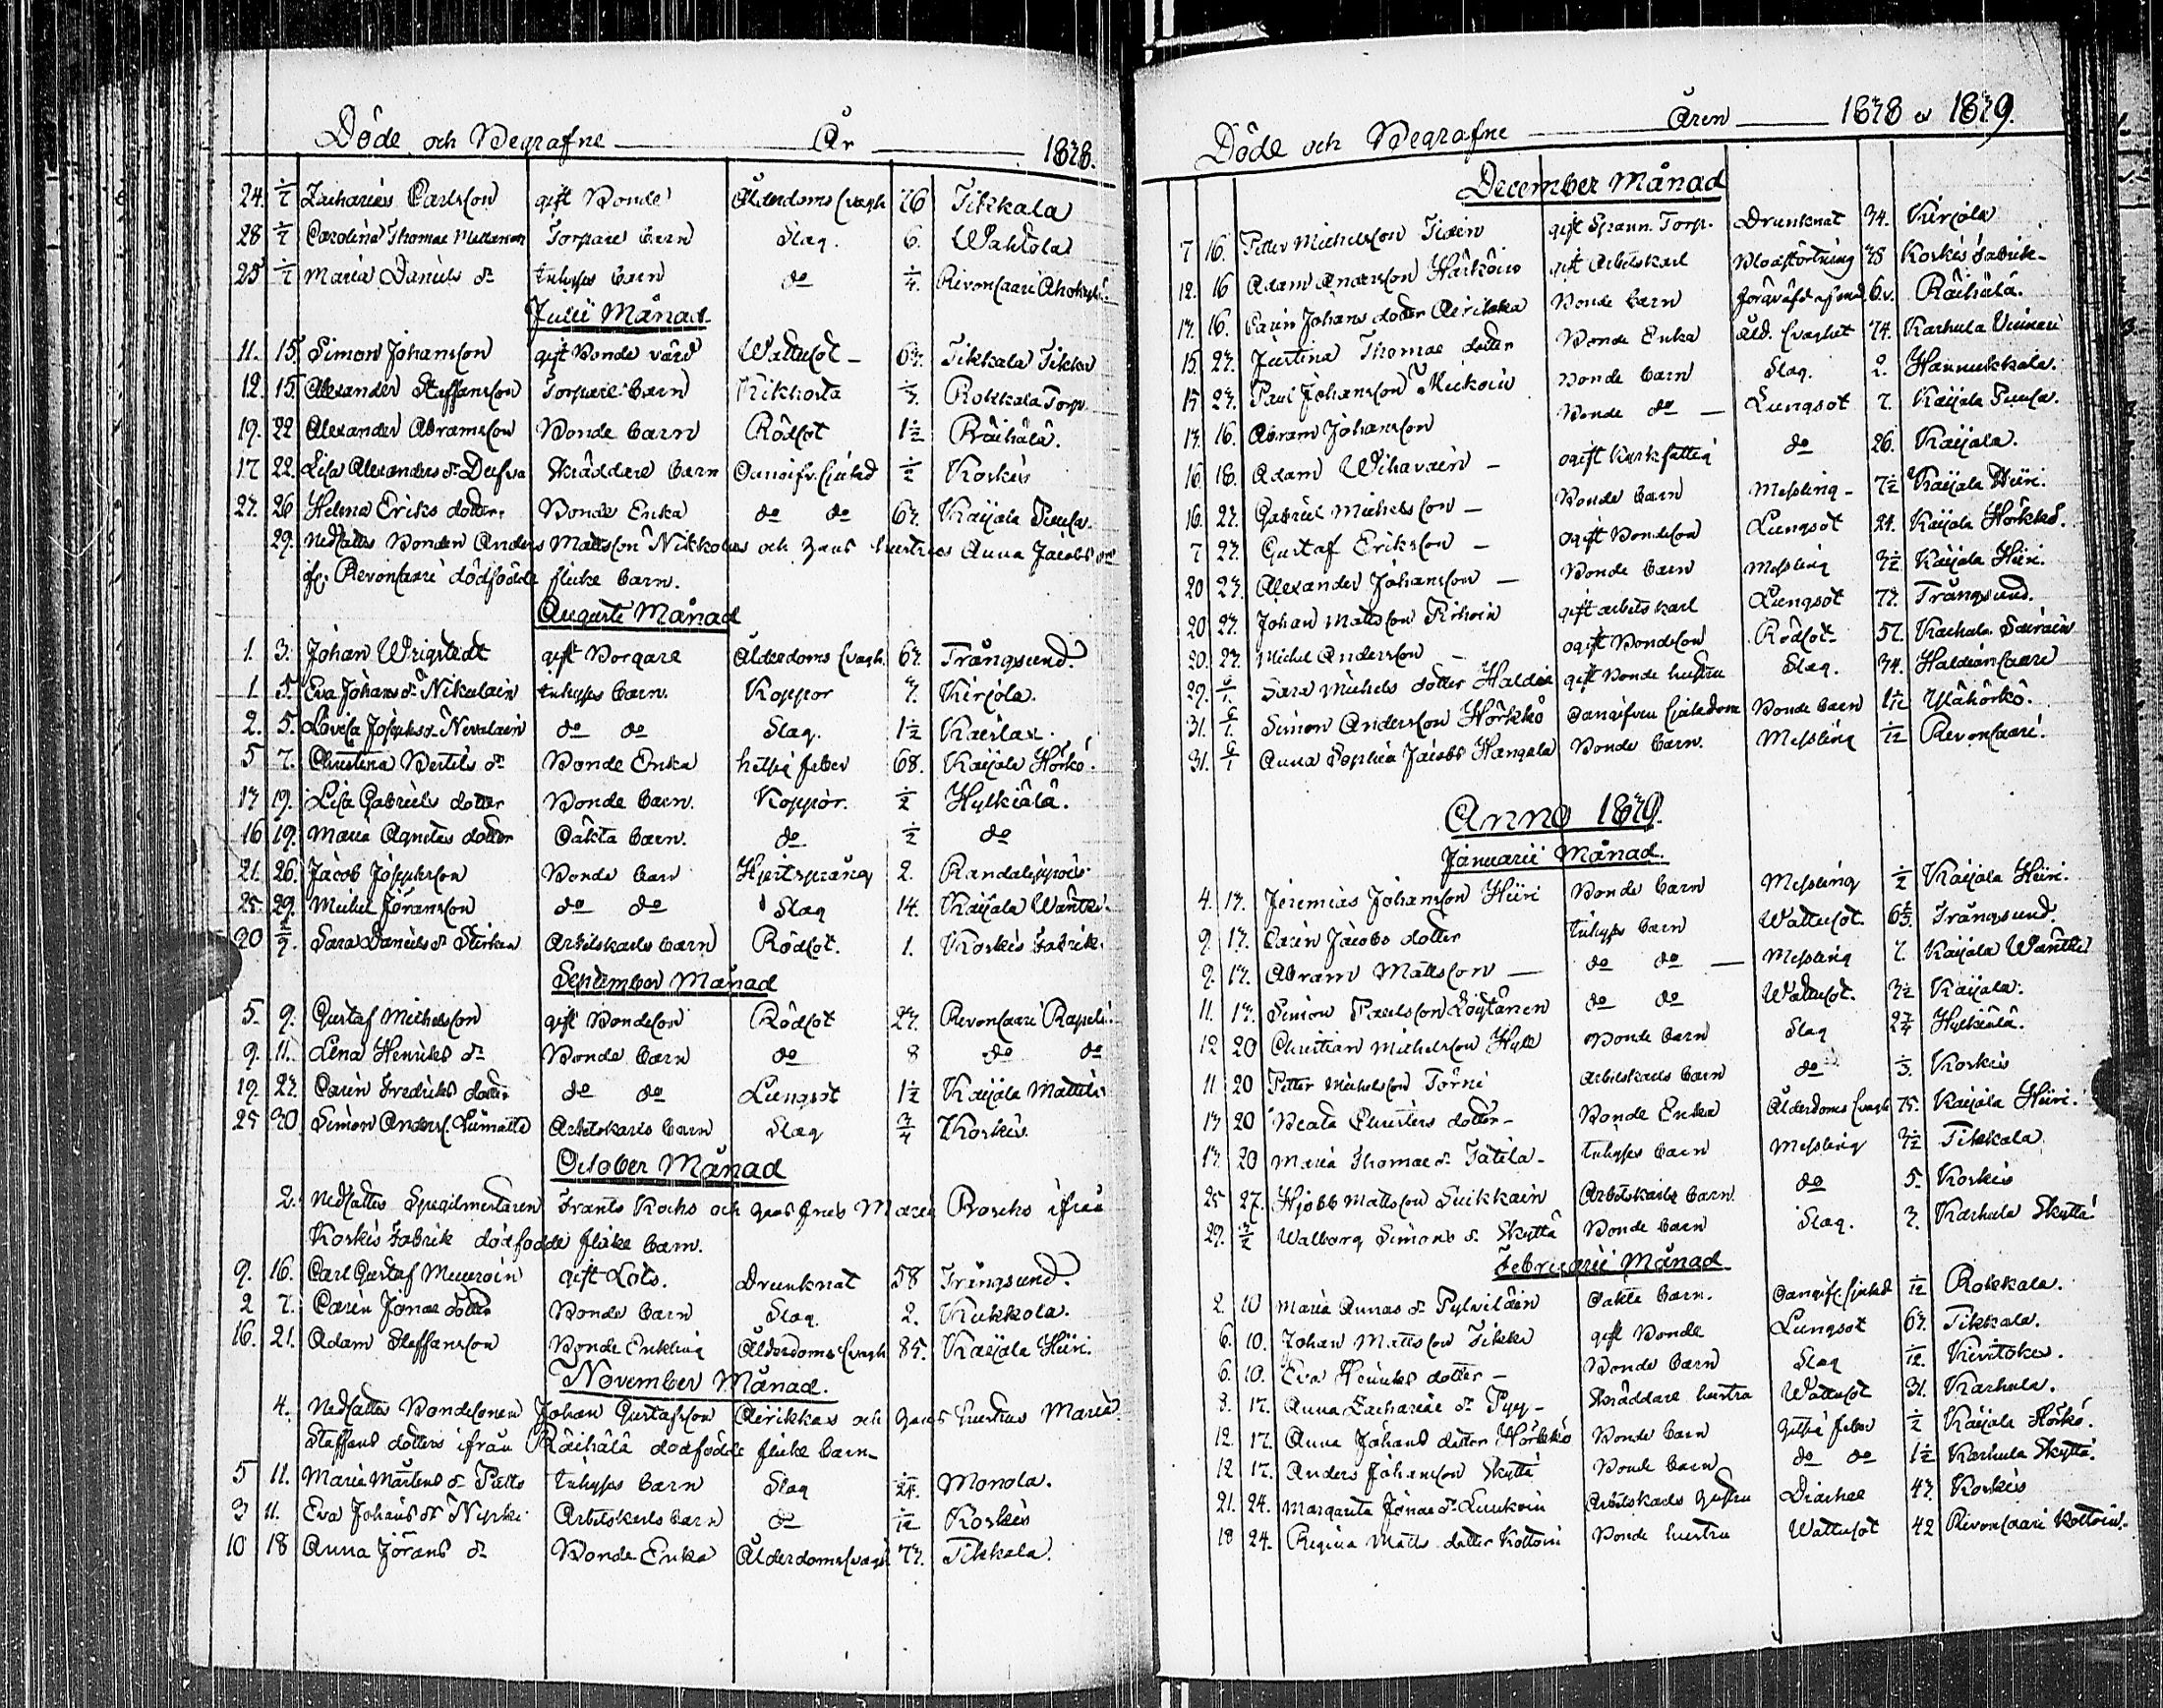 Döde och Begrafne År 1878.
24. 1/7 Zacharias Carlsson gift Bonde Ålderdoms svagh 76 Tikkala
28 1/7 Carolina Thomae Torpare barn Slag. 6. Wahtola
28 1/7 Maria Daniels dr tuhyses barn do Revonsaari
Julii Månad.
11. 15. Simon Johansson gift Bonde värd Wattusot 63. Tikkala Tikka
12. 15. Alexander Staffansson Torpare barn Kikhosta Rokkala Torp.
19. 22 Alexander Abramsson Bonde barn Rödsot 1 1/2 Räihälä.
17 22. Lisa Alexanders dr Dufva Skräddare barn Oangifv. sjukd 1/2 Koskis
23. 26 Helena Eriks dotter Bonde Enka do do 63. Kaijala
29. Nedsattes Bonden Anders Mattsson Nikkolas och hans hustrus Anna Jacobs dr
ifr. Revonsaari dödfödde flicke barn.
Augusti Månad
1. 3. Johan Wrigstedt gift Borgare Ålderdoms svagh. 63. Trångsund.
1. 5. Eva Johans dr Nikulain tuhyses barn. Koppor Kirjola.
2. 5. Lovisa Josephs dr Nevalain do do Slag. 1 1/2 Kaislax.
5 7. Christina Bertils dr Bonde Enka hetsig feber 68. Kaijala Hörkö.
17 19. Lisa Gabriels dotter Bonde barn. Koppor. 1/2 Hylkiälä.
16 19. Maria Agnetas dotter Oäkta barn. do 1/2 do
21. 26. Jacob Josephsson Bonde barn Hjertsprång 2.
25. 29. Michel Jöransson do do Slag 14. Kaijala
30 2/9. Sara Daniels dr Arbetskarls barn Rödsot. 1. Koskis Fabrik.
September Månad
5. 9. Gustaf Michelsson gift Bondeson Rödsot 23. Revonsaari
9. 11. Lena Henriks dr Bonde barn do 8 do do
19. 23. Carin Fredriks dotter do do Lungsot 1 1/2 Kaijala Mattila
25 30. Simon Anderss. Liimatta Arbetskarls barn Slag 3/4 Koskis
October Månad
2. Nedsattes Spegilmestaren Frants Kochs och hans frus Maria Roschs ifrån
Koskis Fabrik dödfödde flicke barn.
9. 16. Carl Gustaf gift Lots. Drunknat 58 Trångsund.
2 7. Carin Jonae dotter Bonde barn Slag. 2. Kukkola.
16. 21. Adam Staffansson Bonde Enkling Ålderdoms svagh 85. Kaijala Hiiri.
November Månad.
4. Nedsattes Bondesonen Johan Gustafsson Airikkas och hans hustrus Maria
Staffans dotters ifrån Räihälä dödfödde flicke barn
5 11. Maria Mårtens dr tuhyses barn Slag Monola.
3 11. Eva Johans dr Nyrki Arbetskarls barn do 1/12 Koskis
10 18 Anna Jörans dr Bonde Enka Ålderdoms svagh 73. Tikkala.
Döde och Begrafne Åren 1878 o 1879.
December Månad
7 16. Petter Michelsson gift Spann. Torp. Drunknat 34. Kirjola
12. 16 Adam Andersson Härköin gift Arbetskarl Blodstörtning 38 Koskis Fabrik
13. 16. Carin Johans dotter Airikka Bonde barn 6 v. Räihälä.
15. 23. Justina Thomae dotter Bonde Enka Åld. svaghet 74. Karhula
15 23. Paul Johansson Mickoin Bonde barn Slag. 2. Hannukkala.
13. 16. Abram Johansson Bonde do Lungsot 7. Kaijala
16. 18. Adam Wihavain ogift Kyrkfattig do 26. Kaijala.
16. 23. Gabriel Michelsson Bonde barn Messling 7 1/2 Kaijala Hiiri.
7 23. Gustaf Eriksson ogift Bondeson Lungsot 24. Kaijala Hörkkö.
20 23. Alexander Johansson Bonde barn Messling 3 1/2 Kaijala Hiiri.
20 23. Johan Mattsson gift arbetskarl Lungsot 73. Trångsund.
20. 23. Michel Andersson ogift Bondeson Rödsot 57. Karhula
29. 6/1. Sara Michels dotter Haldin gift Bonde hustru Slag. 34. Haldiansaari
31. 6/1. Simon Andersson Hörkkö Oangifven sjukdom Bonde barn Ylähörkö.
31. 6/1 Anna Sophia Jacobs Hangala Bonde barn. Messling 1/12 Revonsaari.
Anno 1879.
Januarii Månad.
4. 13. Jeremias Johansson Hiiri Bonde barn Messling 1/2 Kaijala Hiiri.
9. 13. Carin Jacobs dotter tuhyses barn Wattusot. Trångsund.
9. 13. Abram Mattsson do do Messling 7. Kaijala
11. 13. Simon Paulsson do do Wattusot. 3 1/2 Kaijala.
12 20 Christian Michelsson Hylk Bonde barn Slag Hylkiälä.
11 20 Petter Michelsson Törni Arbetskarls barn do Koskis
13 20 Beata Christers dotter Bonde Enka Ålderdoms svagh 75. Kaijala Hiiri.
13. 20 Maria Thomae dr Tatila tuhyses barn Messling 3 1/2 Tikkala
25 27. Hjobb Mattsson Suikkain Arbetskarls barn. do 5. Koskis
29. 3/2 Walborg Simons dr Skyttä Bonde barn Slag. 3. Karhula Skyttä
Februarii Månad
2. 10 Maria Annas dr Oäkta barn. Oangifv. sjukd 1/12 Rokkala.
6. 10. Johan Mattsson Tikka gift Bonde Lungsot 63. Tikkala.
6. 10. Eva Henriks dotter Bonde barn Slag 1/12.
8. 17. Anna Zachariae dr Pyy Skräddare hustru Wattusot 31. Karhula.
12. 17. Anna Johans dotter Hörkkö Bonde barn hetsig feber 1/2 Kaijala Hörkö.
12 17. Anders Johansson Skyttä Bonde barn do do 1 1/2 Karhula Skyttä.
21. 24. Margareta Jonae dr Luukoin Arbetskarls hustru Diarhee 43. Koskis
18 24. Regina Matts dotter Kottoin Bonde hustru Wattusot 42 Revonsaari Kottoin.